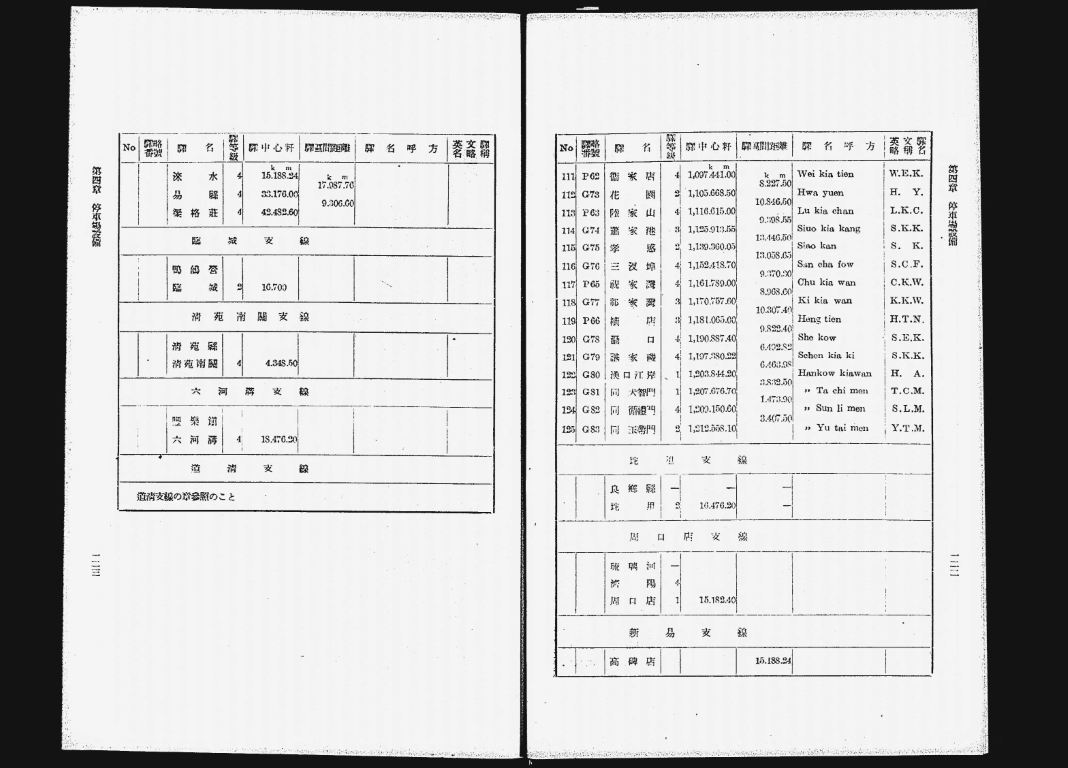 第四章 停車場設備
No 驛略番號 驛名 驛等級 驛中心粁 驛區間距離 驛名呼方 英文略稱驛名
111 P62 衞家店 4 1,097.441.00 Wei kia tien W.E.K.
8.227.50
112 G73 花園 2 1,105.668.50 Hwa yuen H. Y.
10.846.50
113 P63 陸家山 4 1,116.615.00 Lu kia chan L.K.C.
9.298.55
114 G74 蕭家港 3 1,125.913.55 Siao kia kang S.K.K.
13.446.50
115 G75 孝感 2 1,139.360.05 Siao kan S. K.
13.058.65
116 G76 三汊埠 4 1,152.418.70 San cha fow S.C.F.
9.370.30
117 P65 祝家灣 4 1,161.789.00 Chu kia wan C.K.W.
8.968.60
118 G77 祁家灣 3 1,170.757.60 Ki kia wan K.K.W.
10.307.40
119 P66 橫店 3 1,181.065.00 Heng tien H.T.N.
9.822.40
120 G78 灄口 4 1,190.887.40 She kow S.E.K.
6.492.82
121 G79 諶家磯 4 1,197.380.22 Schen kia ki S.K.K.
6.463.98
122 G80 漢口江岸 1 1,203.844.20 Hankow kiawan H. A.
3.832.50
123 G81 同 大智門 1 1,207.676.70 〃 Ta chi men T.C.M.
1.473.90
124 G82 同 循禮門 4 1,209.150.60 〃 Sun li men S.L.M.
3.407.50
125 G83 同 玉帶門 2 1,212.558.10 〃 Yu tai men Y.T.M.
坨里支線
良鄕縣 — — —
坨里 2 16.476.20 —
周口店支線
琉璃河 —
窰陽 4
周口店 1 15.182.40
新易支線
高碑店 15.188.24
一三二
第四章 停車場設備
No 驛略番號 驛名 驛等級 驛中心粁 驛區間距離 驛名呼方 英文略稱驛名
淶水 4 15.188.24
17.987.76
易縣 4 33.176.00
9.306.60
梁格莊 4 42.482.60
臨城支線
鴨鴿營
臨城 2 16.700
淸苑南關支線
淸苑縣
淸苑南關 4 4.348.50
六河溝支線
豐樂鎭
六河溝 4 18.476.20
道淸支線
道淸支線の章參照のこと
一三三